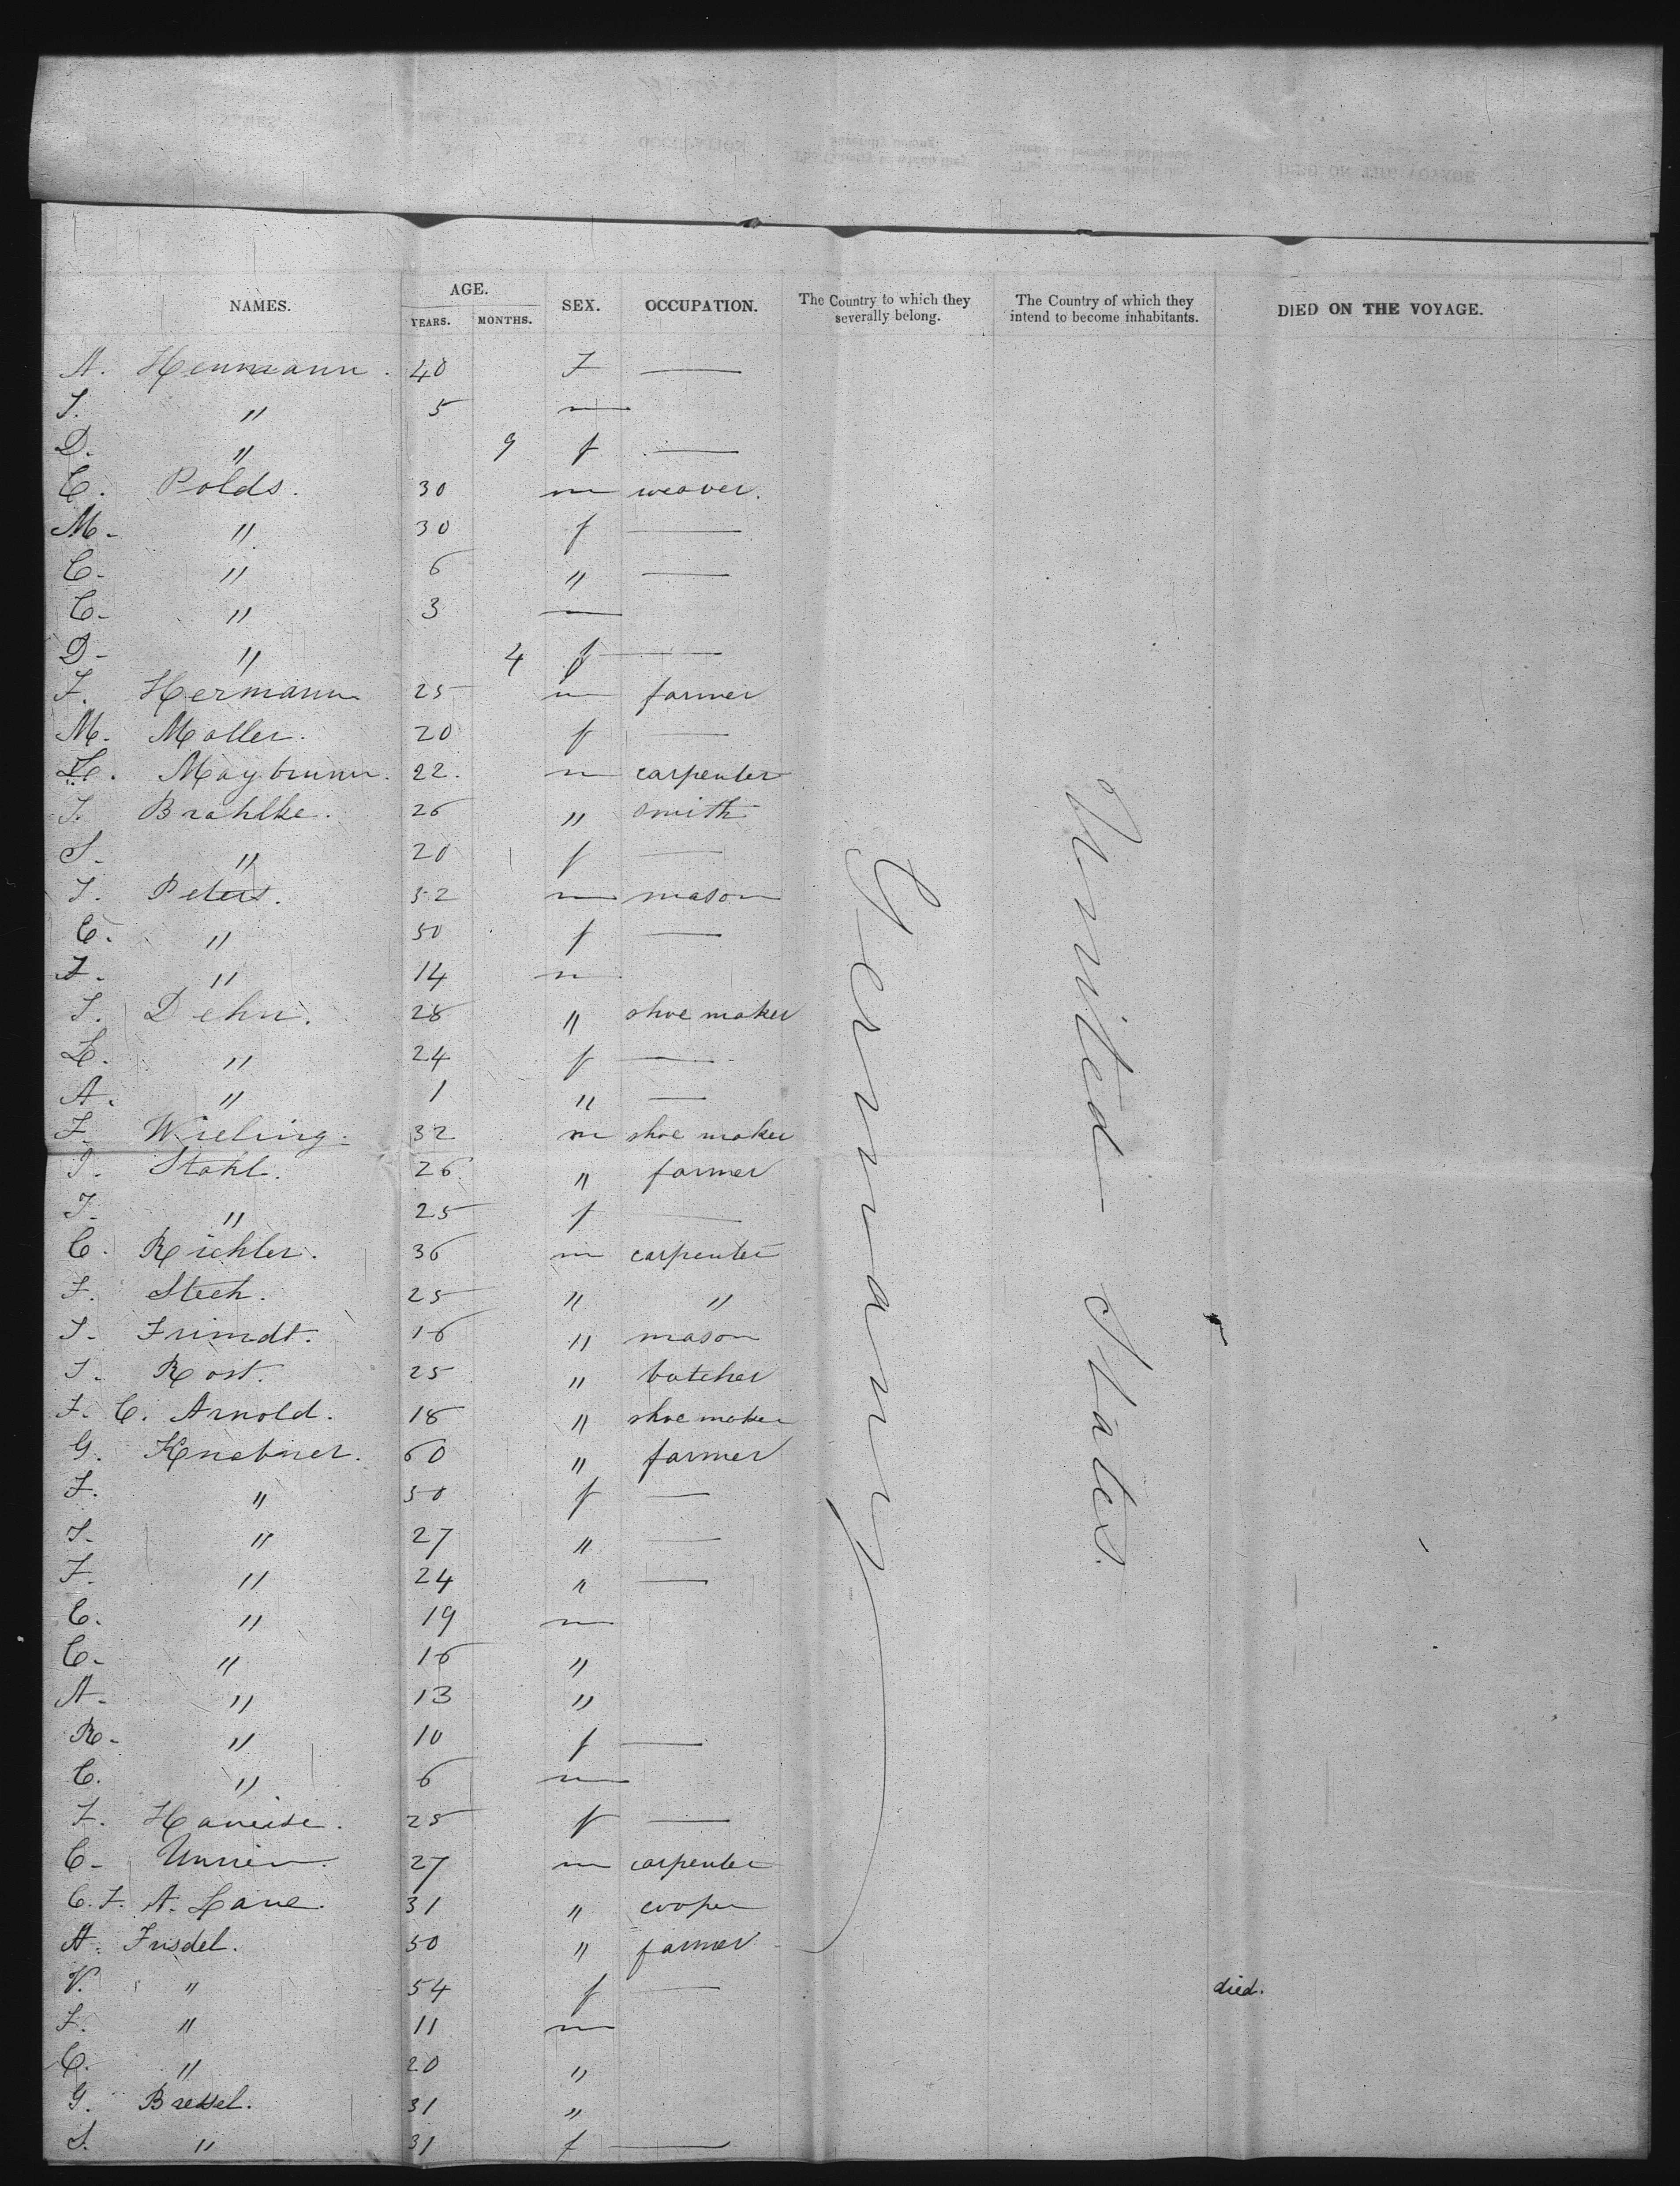 NAMES. AGE. YEARS. MONTHS. SEX. OCCUPATION. The Country to which they severally belong. The Country of which they intend to become inhabitants. DIED ON THE VOYAGE.
A. Henmann. 40 F —
J. " 5 m
D. " 9 f —
C. Polds. 30 m weaver.
M. " 30 f —
C. " 6 " —
C. " 3 —
D. " 4 f —
F. Hermann 25 m farmer
M. Moller. 20 f —
H. Maybrunn. 22. m carpenter
J. Brahlke. 26 " smith
S. " 20 f —
J. Peters. 52 m mason
C. " 50 f —
F. " 14 m
J. Dehn. 28 " shoe maker
L. " 24 f —
A. " 1 " —
F. Wieling. 32 m shoe maker
J. Stahl. 26 " farmer
J. " 25 f —
C. Richler. 36 m carpenter
F. Stech. 25 " "
J. Frimdt. 16 " mason
J. Rost. 25 " butcher
F. C. Arnold. 18 " shoe maker
G. Knebner. 60 " farmer
F. " 50 f —
J. " 27 " —
F. " 24 " —
C. " 19 m
C. " 16 "
A. " 13 "
R. " 10 f —
C. " 6 m
F. 25 f —
C. 27 m carpenter
C. F. A. Lane. 31 " cooper
A. Frisdel. 50 " farmer
V. " 54 f — died.
F. " 11 m
C. " 20 "
G. Bressel. 31 "
S. " 31 f —
Germany
United States.